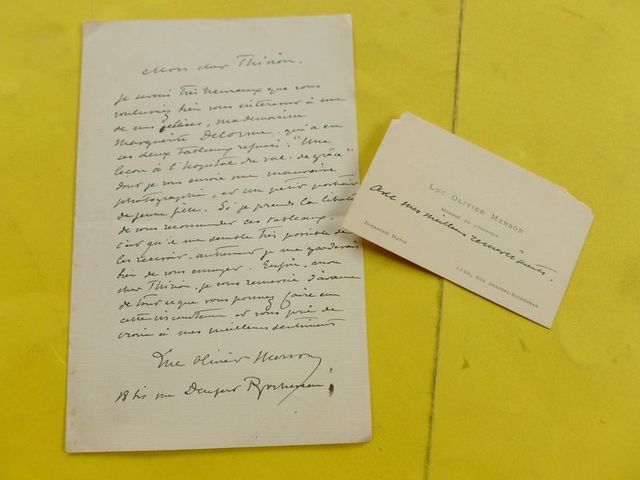 Mon cher Thirion.
Je serais très heureux que vous
voulussiez bien vous intéresser à une
de nos élèves, Mademoiselle
Marguerite Delorme, qui a eu
ses deux tableaux refusés: "Une
leçon à l'hôpital du Val-de-grâce"
dont je vous envoie une mauvaise
photographie, et un petit portrait
de jeune fille. Si je prends la liberté
de vous recommander ces tableaux.
c'est qu'il me semble très possible de
les recevoir, autrement je me garderais
bien de vous ennuyer. Enfin, mon
cher Thirion, je vous remercie d'avance
de tout ce que vous pourrez faire en
cette circonstance et vous prie de
croire à mes meilleurs sentiments
Luc Olivier Merson
18 bis rue Denfert Rochereau
LUC OLIVIER MERSON
MEMBRE DE L'INSTITUT
avec mes meilleurs remerciements.
DIMANCHE MATIN
RUE DENFERT-ROCHEREAU